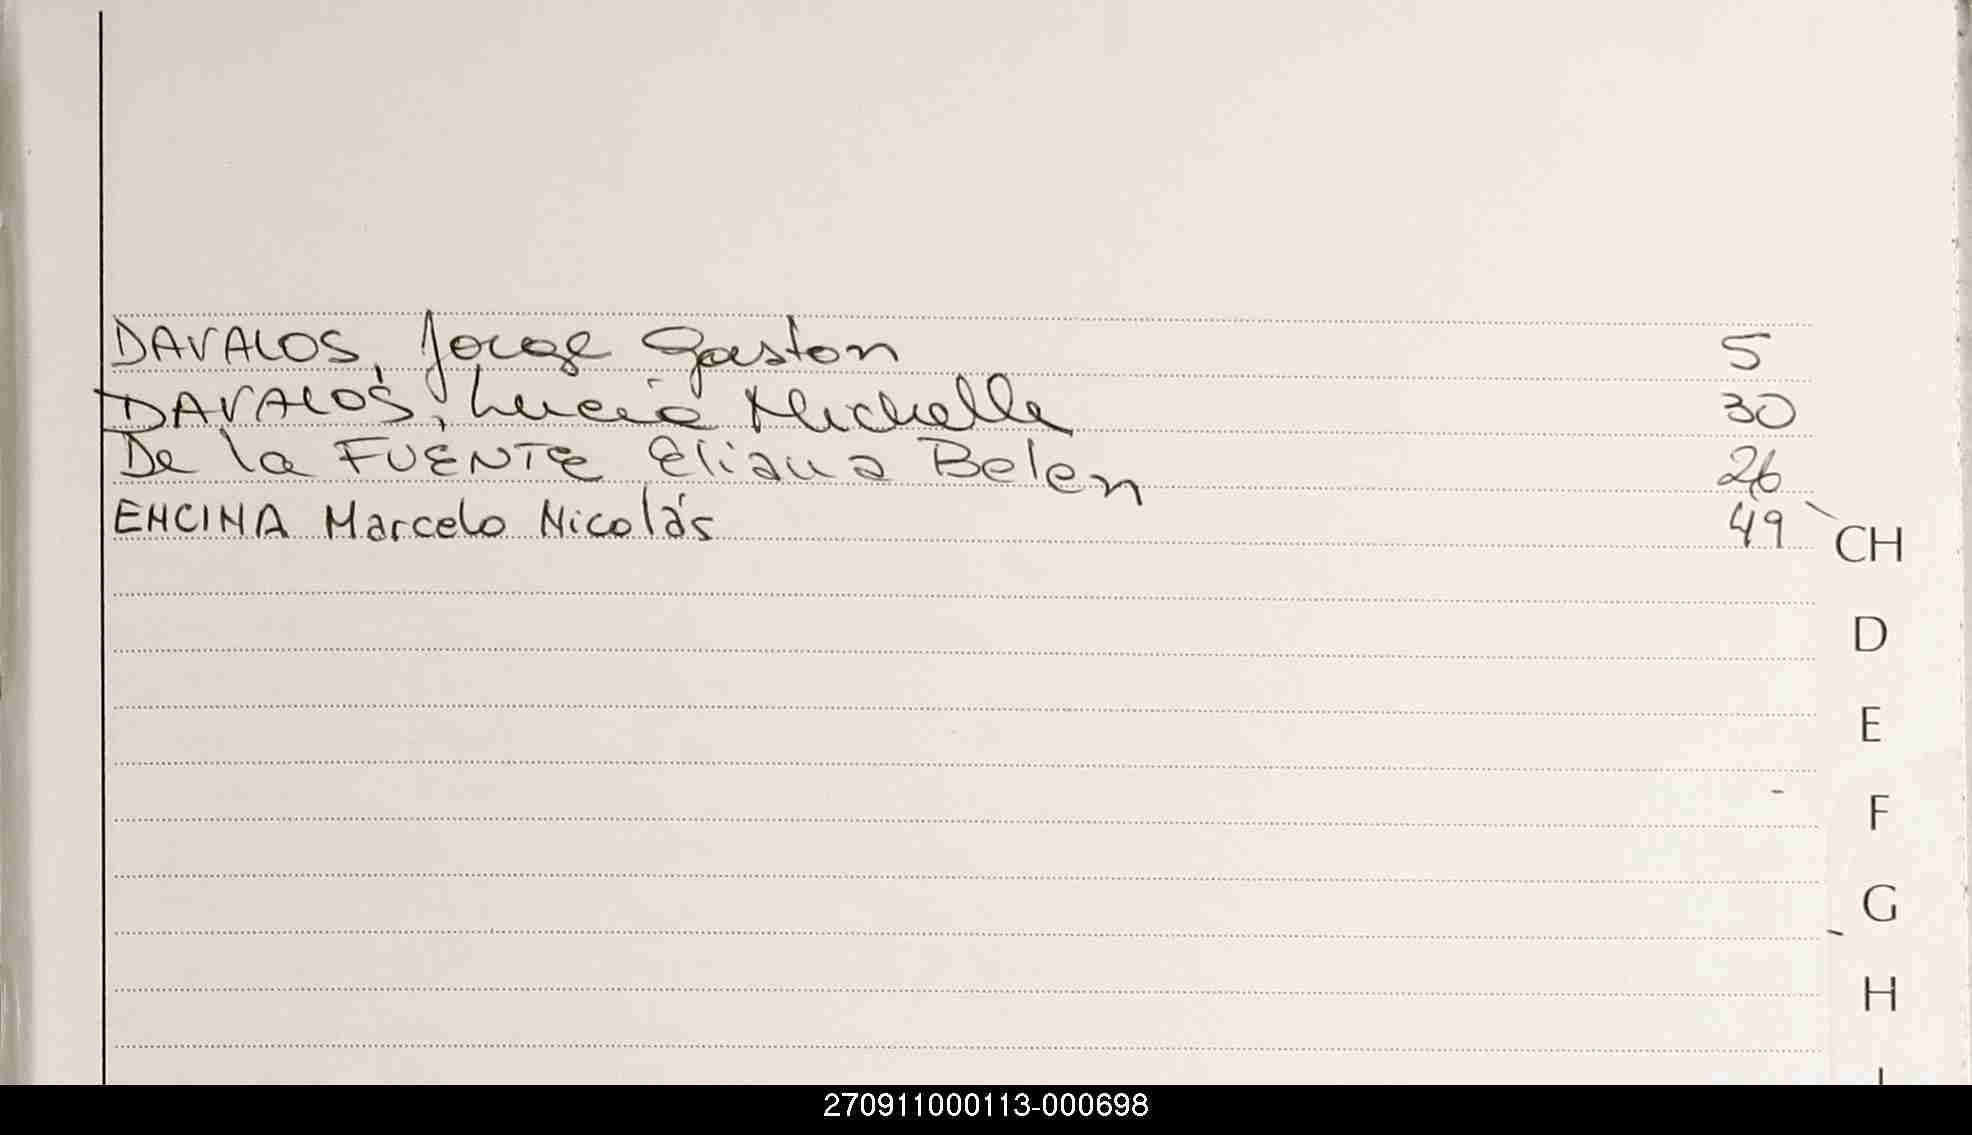 DAVALOS, Jorge Gaston 5
DAVALOS, Lucía Michelle 30
De la FUENTE Eliana Belen 26
ENCINA Marcelo Nicolás 49
CH
D
E
F
G
H
270911000113-000698